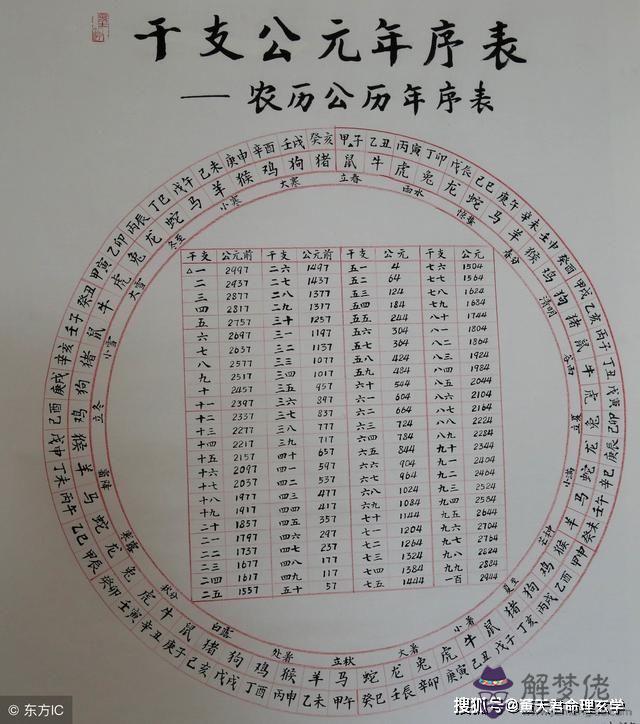 干支公元年序表
——农历公历年序表
甲子 乙丑 丙寅 丁卯 戊辰 己巳 庚午 辛未 壬申 癸酉 甲戌 乙亥 丙子 丁丑 戊寅 己卯 庚辰 辛巳 壬午 癸未 甲申 乙酉 丙戌 丁亥 戊子 己丑 庚寅 辛卯 壬辰 癸巳 甲午 乙未 丙申 丁酉 戊戌 己亥 庚子 辛丑 壬寅 癸卯 甲辰 乙巳 丙午 丁未 戊申 己酉 庚戌 辛亥 壬子 癸丑 甲寅 乙卯 丙辰 丁巳 戊午 己未 庚申 辛酉 壬戌 癸亥
鼠 牛 虎 兔 龙 蛇 马 羊 猴 鸡 狗 猪 鼠 牛 虎 兔 龙 蛇 马 羊 猴 鸡 狗 猪 鼠 牛 虎 兔 龙 蛇 马 羊 猴 鸡 狗 猪 鼠 牛 虎 兔 龙 蛇 马 羊 猴 鸡 狗 猪 鼠 牛 虎 兔 龙 蛇 马 羊 猴 鸡 狗 猪
立春 雨水 惊蛰 春分 清明 谷雨 立夏 小满 芒种 夏至 小暑 大暑 立秋 处暑 白露 秋分 寒露 霜降 立冬 小雪 大雪 冬至 小寒 大寒
干支 公元前 干支 公元前 干支 公元 干支 公元
△一 2997 二六 1497 五一 4 七六 1504
二 2937 二七 1437 五二 64 七七 1564
三 2877 二八 1377 五三 124 七八 1624
四 2817 二九 1317 五四 184 七九 1684
五 2757 三十 1257 五五 244 八十 1744
六 2697 三一 1197 五六 304 八一 1804
七 2637 三二 1137 五七 364 八二 1864
八 2577 三三 1077 五八 424 八三 1924
九 2517 三四 1017 五九 484 八四 1984
十 2457 三五 957 六十 544 八五 2044
十一 2397 三六 897 六一 604 八六 2104
十二 2337 三七 837 六二 664 八七 2164
十三 2277 三八 777 六三 724 八八 2224
十四 2217 三九 717 六四 784 八九 2284
十五 2157 四十 657 六五 844 九十 2344
十六 2097 四一 597 六六 904 九一 2404
十七 2037 四二 537 六七 964 九二 2464
十八 1977 四三 477 六八 1024 九三 2524
十九 1917 四四 417 六九 1084 九四 2584
二十 1857 四五 357 七十 1144 九五 2644
二一 1797 四六 297 七一 1204 九六 2704
二二 1737 四七 237 七二 1264 九七 2764
二三 1677 四八 177 七三 1324 九八 2824
二四 1617 四九 117 七四 1384 九九 2884
二五 1557 五十 57 七五 1444 一百 2944
解梦佬
搜狐号@董天君命理玄学
© 东方IC